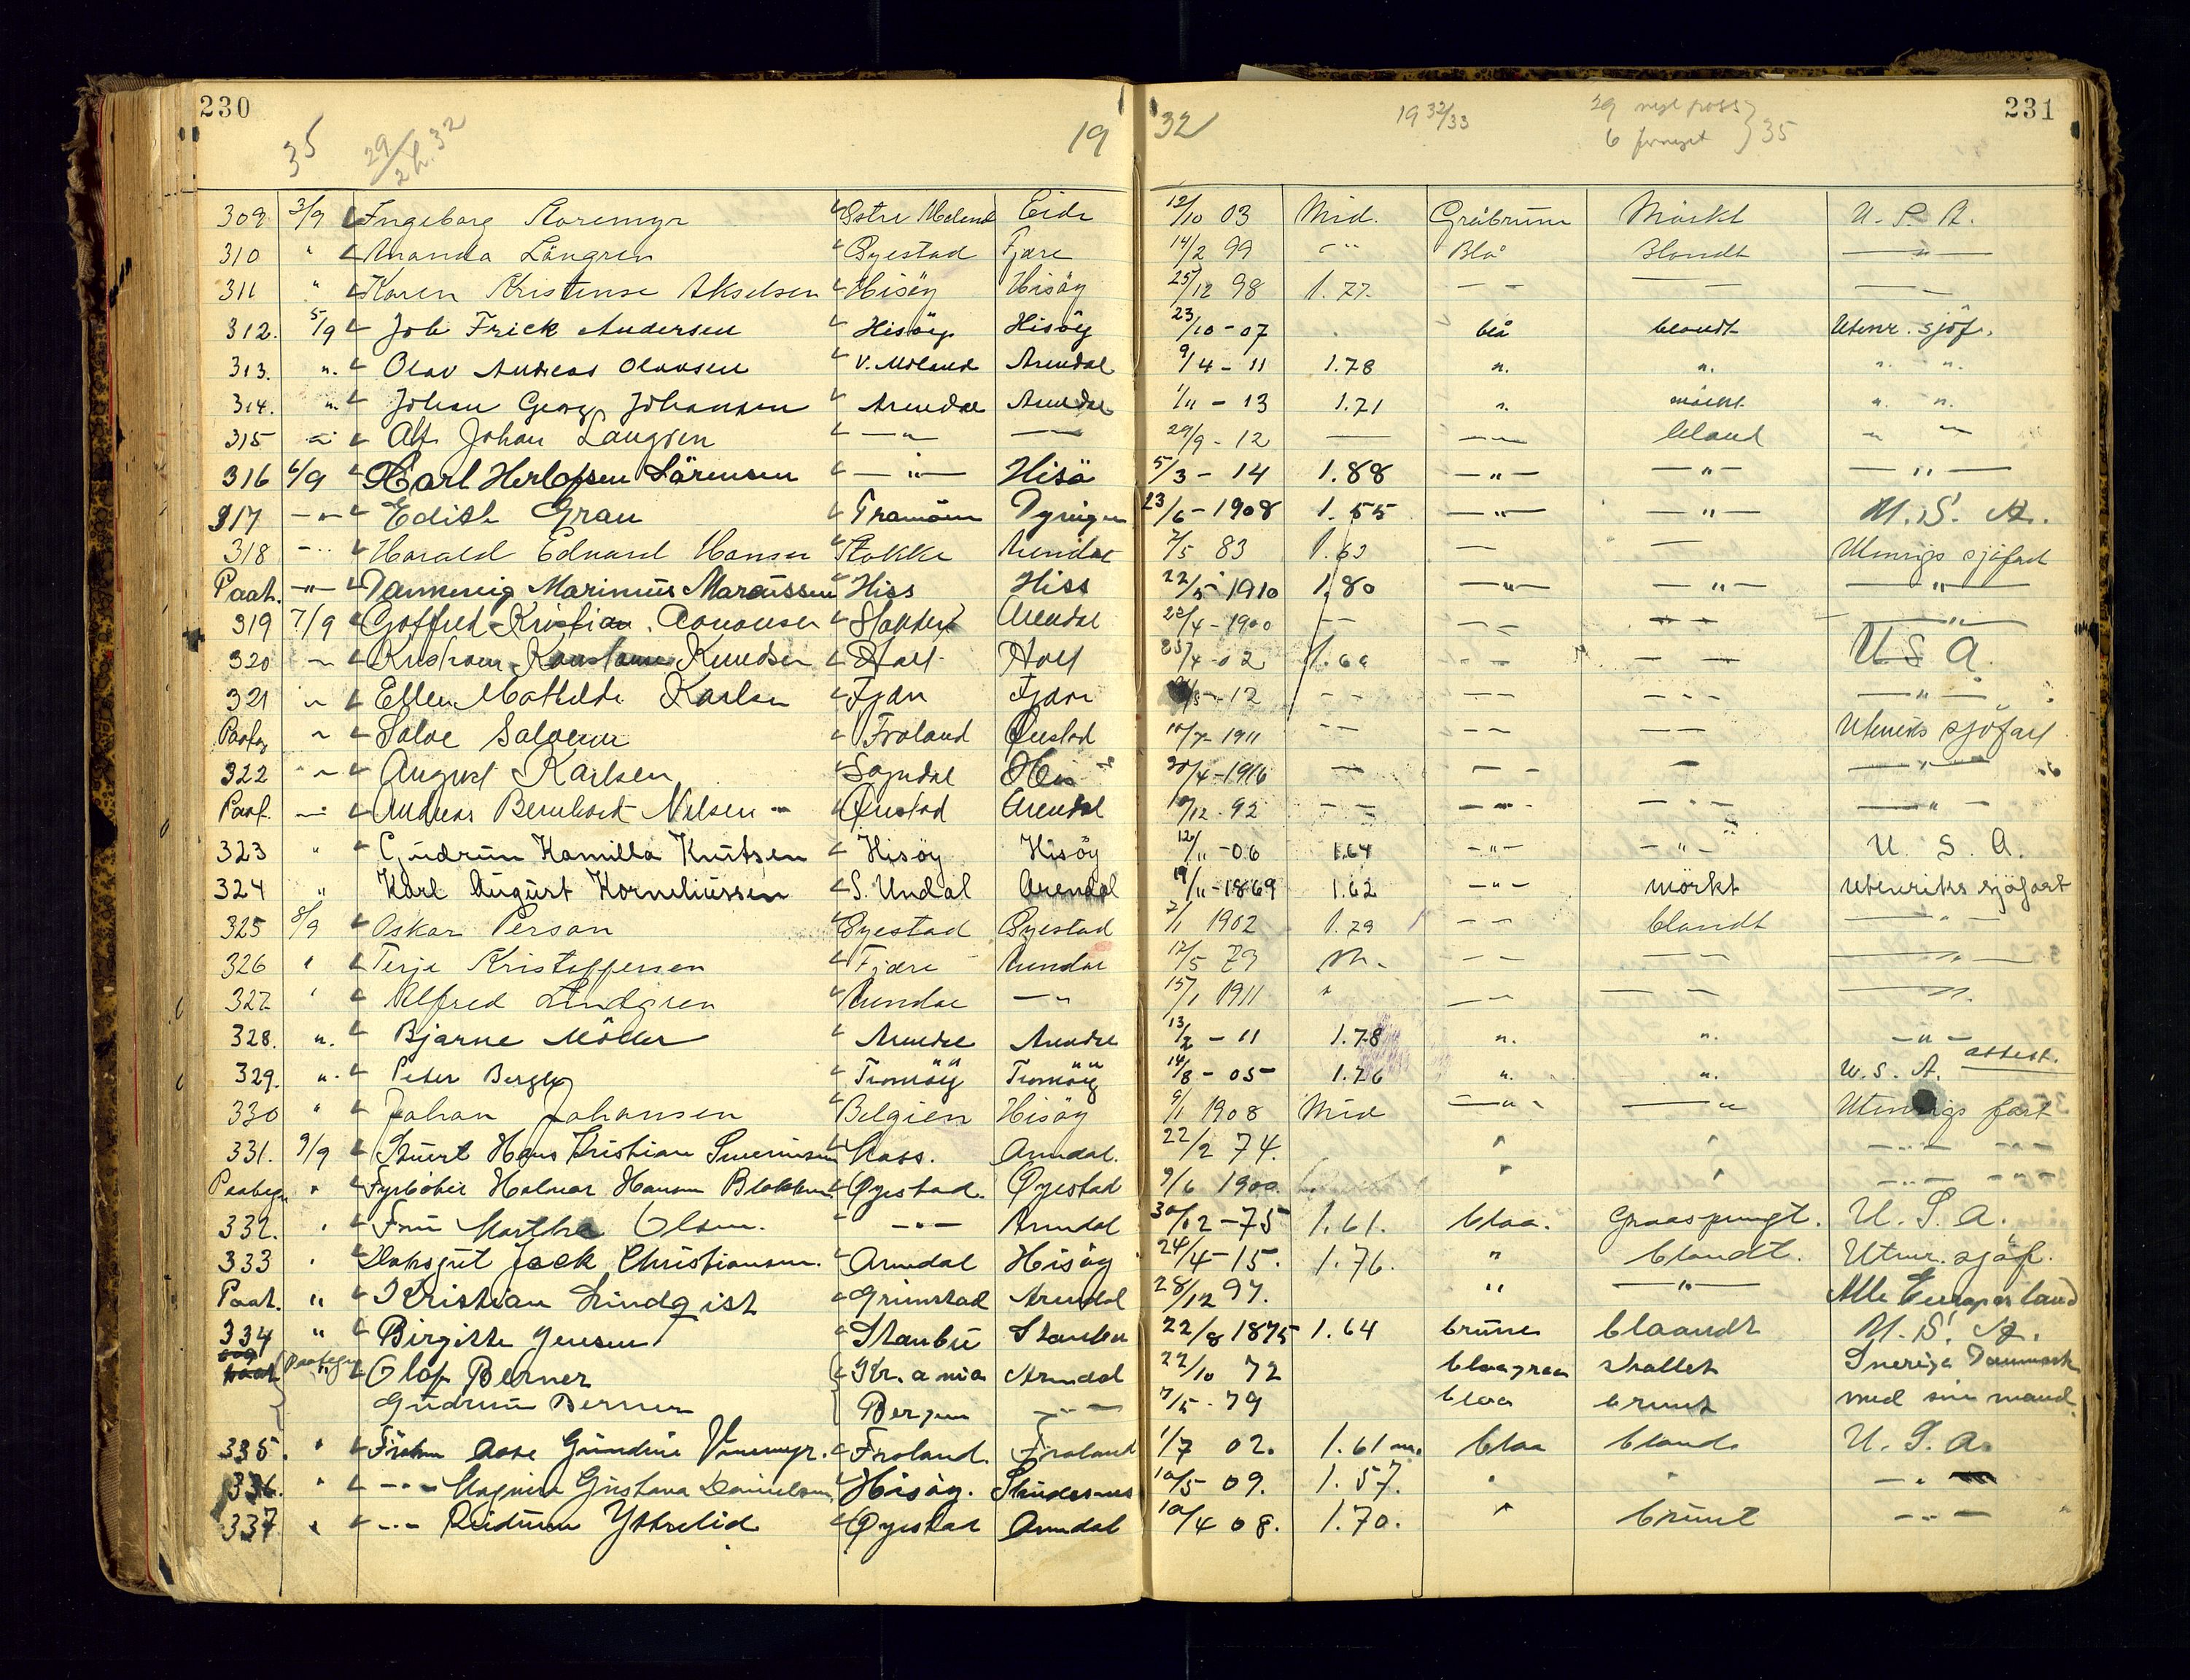 230
231
35 29/2 h. 32 19 32 19 32/33 29 nye pass 6 fornyet } 35
309 3/9 Ingeborg Roremyr Østre Moland Eide 12/10 03 Mid. Gråbrune Mörkt U. S. A.
310 " Amanda Långren Öyestad Fjære 14/2 99 - " Blå Blondt — " —
311 " Karen Kristense Akselsen Hisöy Hisöy 25/12 98 1.77. — — — — —
312. 5/9 Joh Frick Andersen Hisöy Hisöy 23/10 - 07 blå blondt Utenr. sjöf.
313. ". Olav Andreas Olausen V. Moland Arendal 9/4 - 11 1.78 ". ". ". ".
314. ". Johan Georg Johansen Arendal Arendal 1/11 - 13 1.71 ". mörkt ". ".
315 " Alf Johan Langren — " — 29/9 - 12 — — bland " "
316 6/9 Karl Herlofsen Sörensen — " — Hisö 5/3 - 14 1.88 — " — — " — — " —
317 — " — Edith Grau Tromöen Dyningen 23/6 - 1908 1.55 — " — — " — U. S. A.
318 - " Harald Edvard Hansen Stokke Arendal 7/5 83 1.63 — — Utenrigs sjöfart
Paat. — " — Marinius Marcussen Hiss Hiss 22/5 1910 1.80 — " — — " — — " —
319 7/9 Gotfred Kristian Stokken Arendal 22/4 - 1900 — — — — — — — " —
320 " Knudsen Holt Holt 4 - 02 1.60 — — — — U S A.
321 " Ellen Mathilde Karlsen Fjære Fjære - 12 — — — — — — — " —
Paateg " Salve Salvesen Froland Öiestad 10/7 1911 — — — — Utenriks sjöfart
322 " August Karlsen Sogndal His 30/4 - 1916 — — — — — " —
Paat. — " Andreas Bernhard Nilsen Öiestad Arendal 10/12 - 92 — — — " — — " — — " —
323 " Gudrun Kamilla Knutsen Hisöy Hisöy 12/11 - 06 1.64 — " — — " — U. S. A.
324 " Karl August Korneliussen S. Undal Arendal 19/11 - 1869 1.62 — " — mörkt utenriks sjöfart
325 8/9 Oskar Person Öyestad Öyestad 2/1 1902 1.79 — — blondt — " —
326 " Terje Kristoffersen Fjære Arendal 17/5 79 M. — — — — — " —
327 " Alfred Lindgren Arendal — " 15/1 1911 " — — — — — " .
328. ". Bjarne Möller Arendal Arendal 13/2 - 11 1.78 ". ". — " —
329. ". Peter Bergh Tromöy Tromöy 14/8 - 05 1.76 ". ". U. S. A. attest.
330 " Johan Johansen Belgien Hisöy 9/1 1908 Mid — " — — " Utenrigs fart
331. 9/9 Stuert Hans Kristian Arendal. 22/2 74. " " — " — — " —
Paategn " Fyrböter Halvar Hansen Blakken Öyestad. Öyestad 9/6 1900. " " — " — — " —
332. " Fru Martha Olsen. — " — Arendal 30/12 - 75 1.61. blaa. Graasprengt. U. S. A.
333 " Dæksgut Jack Christiansen. Arendal Hisöy 24/4 - 15. 1.76. " blondt. Utenr. sjöf.
Paat. " Kristian Lindqist Grimstad Arendal 28/12 97. " — " — Alle Europas land
334 " Birgitte Jensen Stanbu Stanbu 22/8 1875 1.64 brune blaandt U. S. A.
Paategn " Olaf Berner Kr.ania Arendal 22/10 72 blaagraa skallet Sverige Danmark
Gudrun Berner Bergen — " — 7/5 - 79 blaa brunt med sin mand.
335. " Fröken Aase Gundine Vinemyr. Froland. Froland 1/7 02. 1.61 m. blaa blond. U. S. A.
336. " — " — Magnia Gustava Danielsen Hisöy. Skudesnes 10/5 09. 1.57. " " — " —
337 " — " — Reidunn Ytrelid Öyestad Arendal 10/4 08. 1.70. " brunt — " —